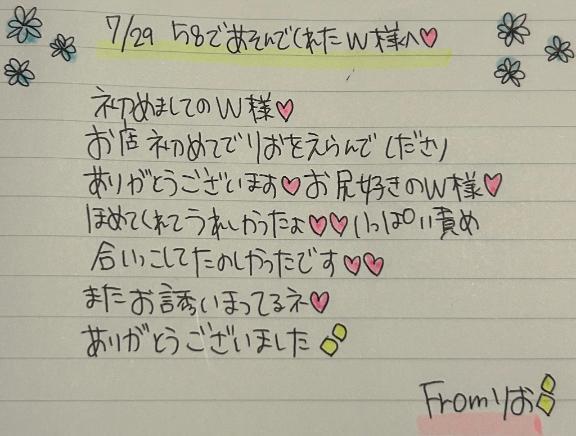 7/29 58であそんでくれたW様へ♡
初めましてのW様♡
お店初めてでりおをえらんでくださり
ありがとうございます♡お尻好きのW様♡
ほめてくれてうれしかったよ♡♡いっぱい責め
合いっこしてたのしかったです♡♡
またお誘いまってるネ♡
ありがとうございました
Fromりお